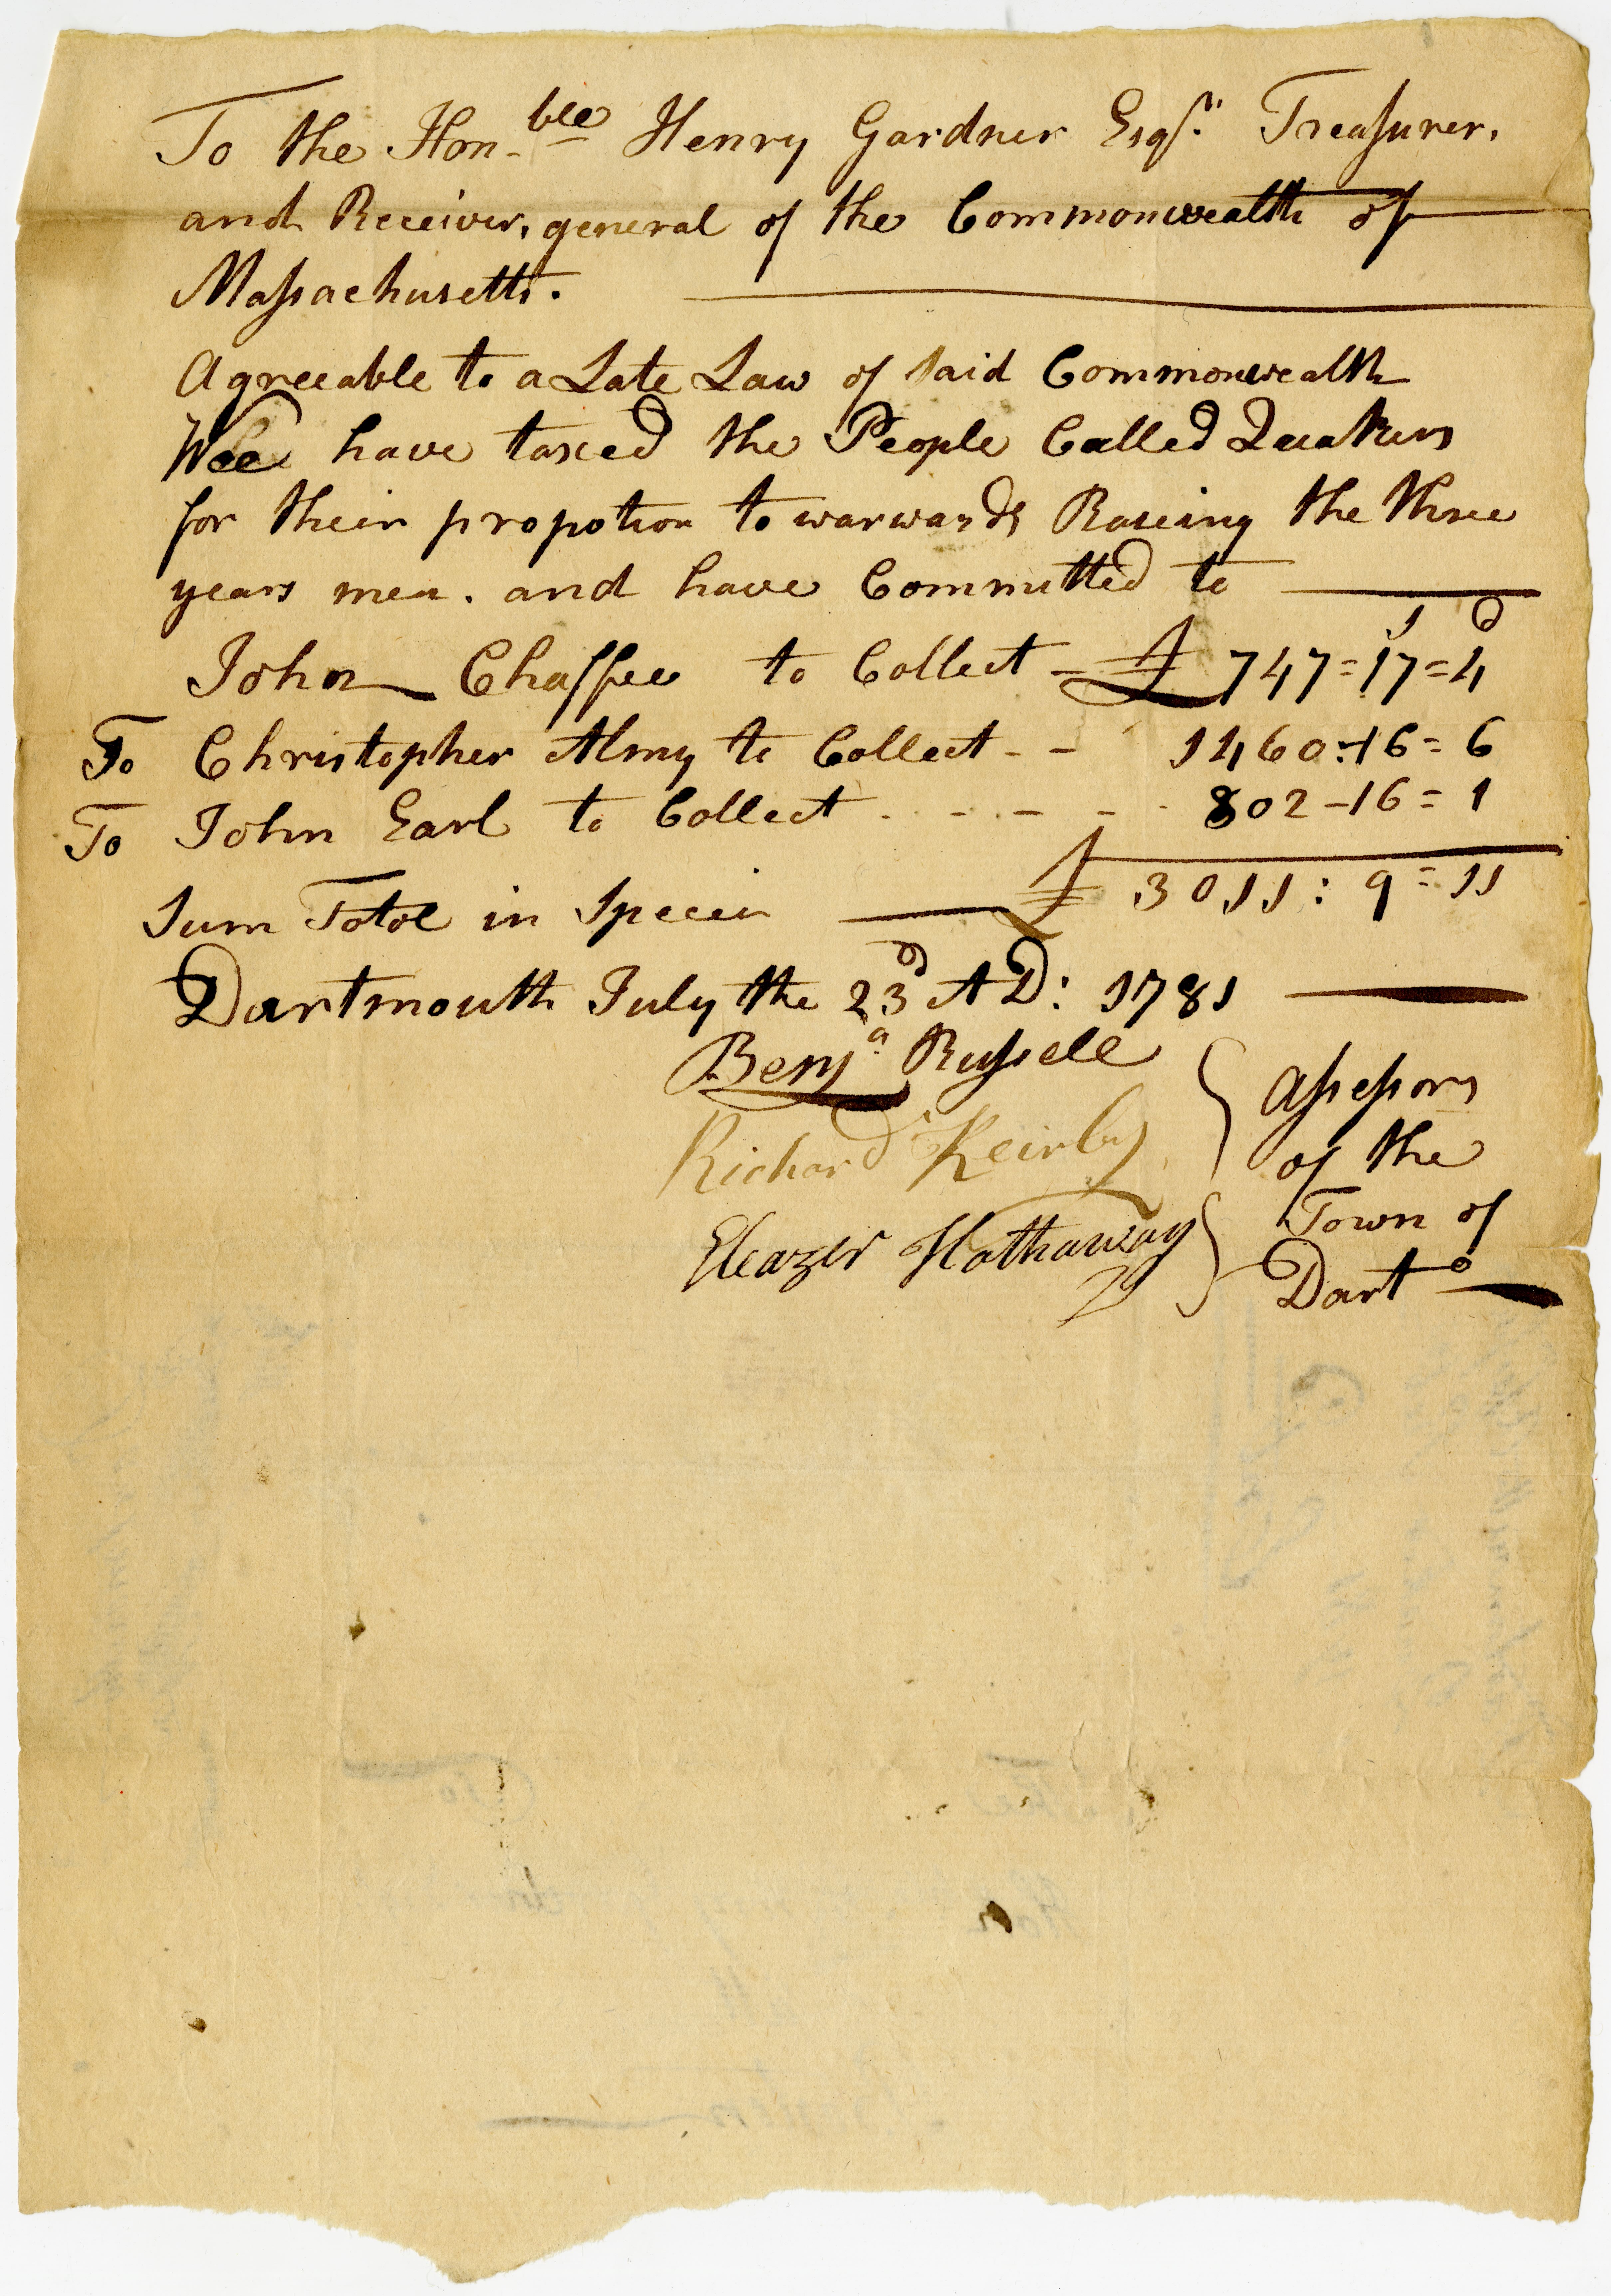 To the Hon-ble Henry Gardner Esqr. Treasurer,
and Receiver, general of the Commonwealth of
Massachusetts.
Agreeable to a Late Law of said Commonwealth
Wee have taxed the People Called Quakers
for their propotion to warwards Raseing the three
years men. and have Committed to
s d
John Chaffee to Collect - £ 747=17=4
To Christopher Almy to Collect - - 1460:16=6
To John Earl to Collect - - - - - 802-16=1
Sum Total in Specia £ 3011:9=11
Dartmouth July the 23d AD: 1781
Benja. Russell
Richard Keirby
Eleazer Hathaway
Assessors
of the
Town of
Darto